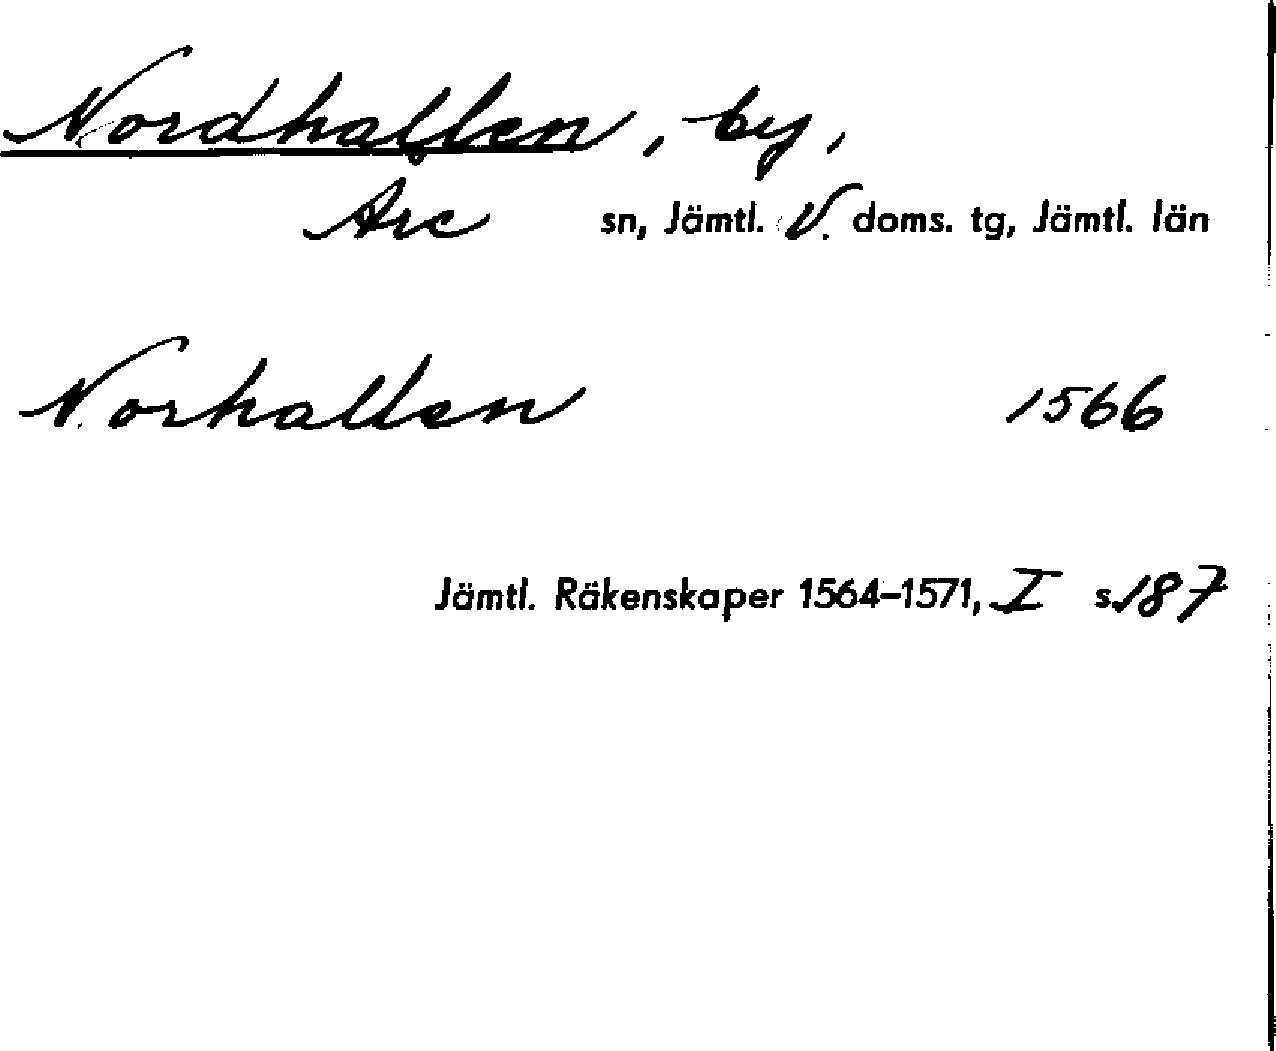 Nordhallen, by,
Are sn, Jämtl. V. doms. tg, Jämtl. län
Norhallen 1566
Jämtl. Räkenskaper 1564–1571, I s. 187